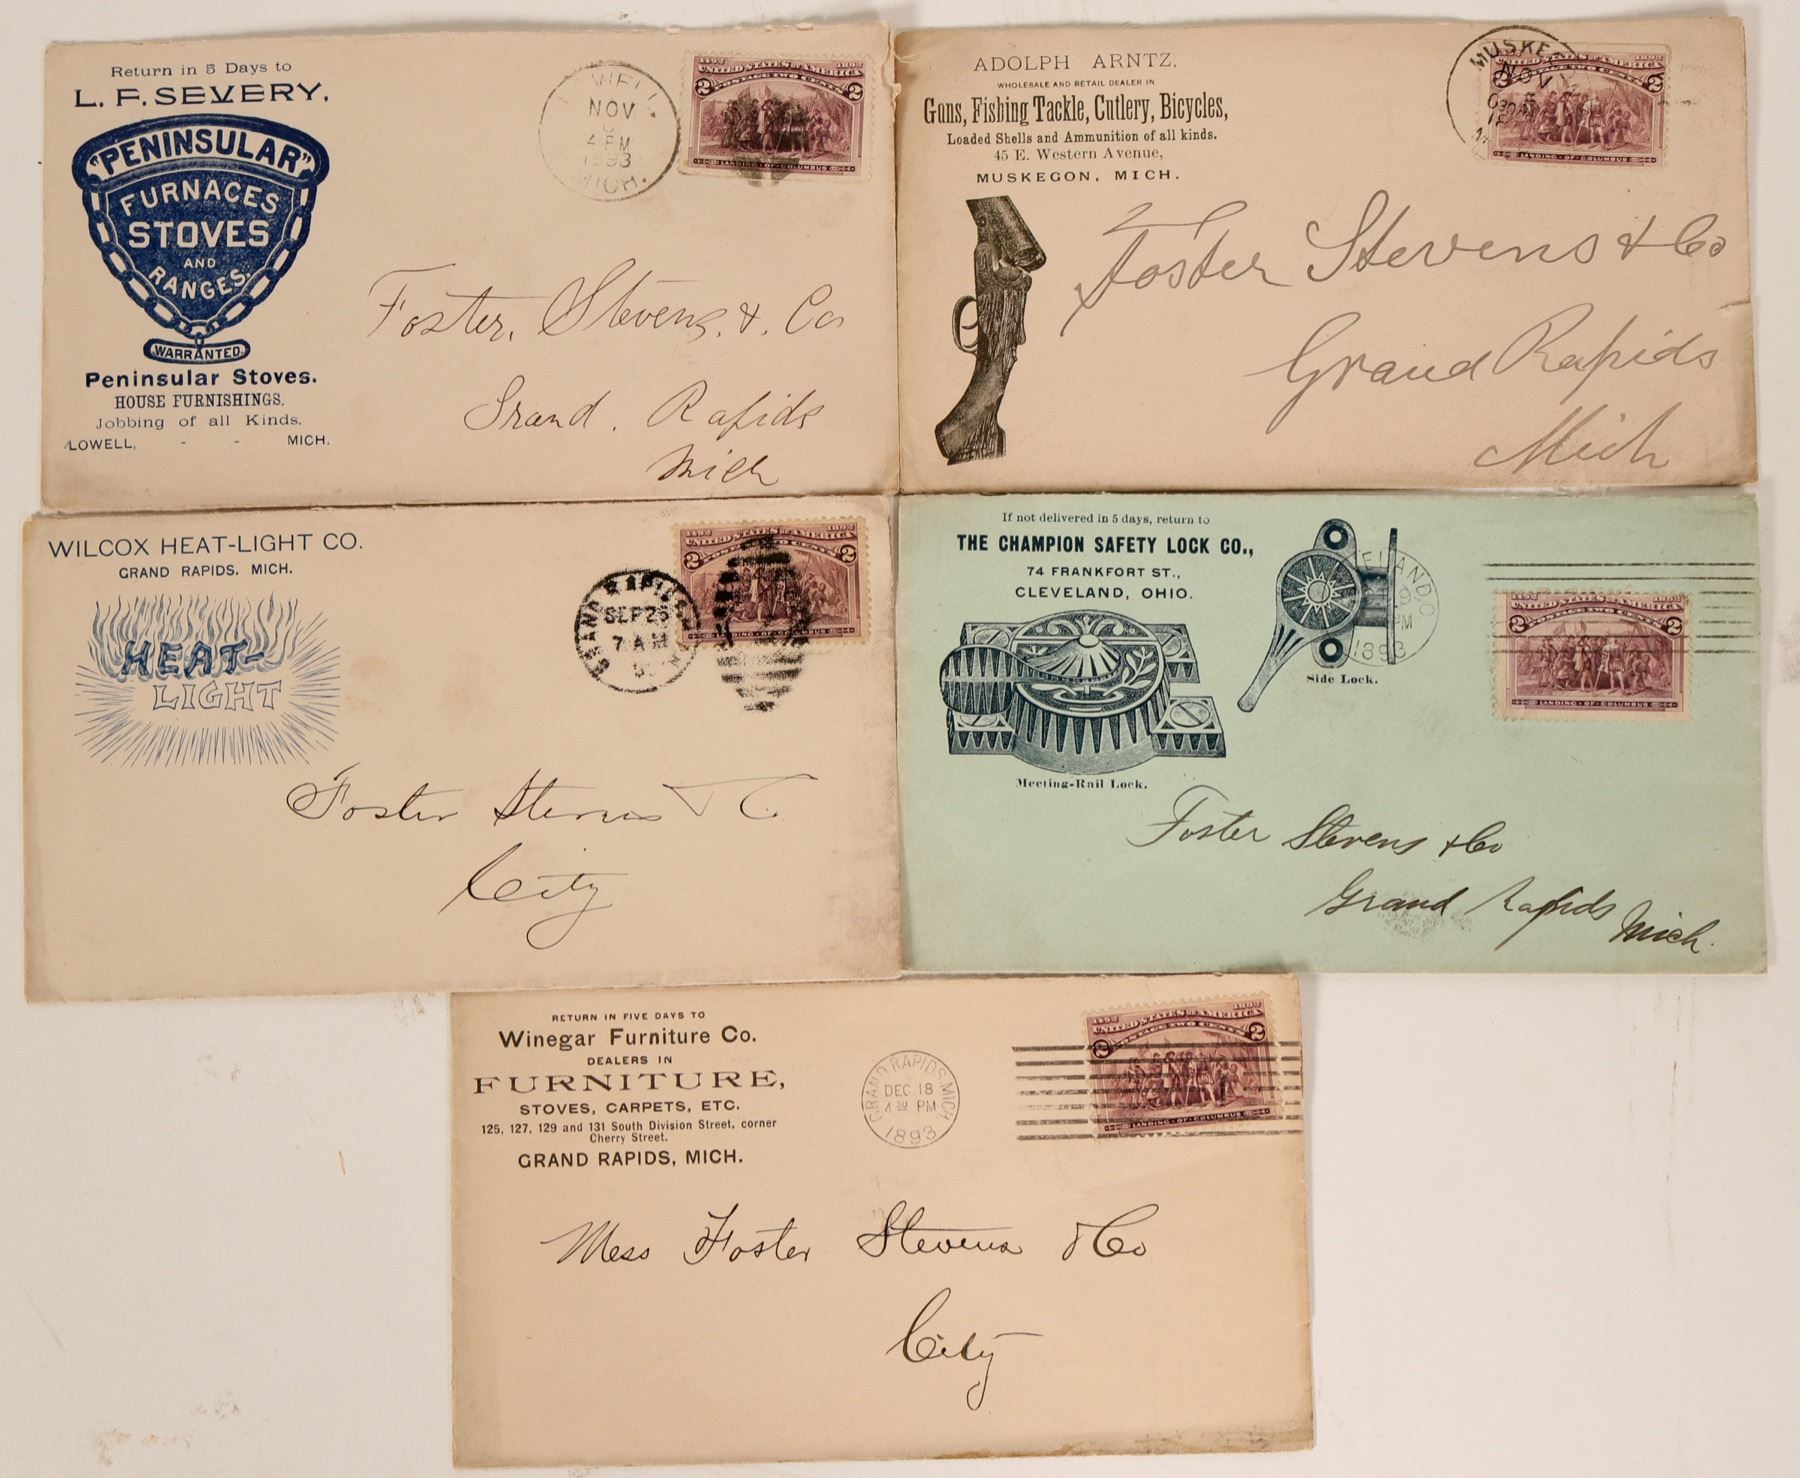 Return in 5 Days to
L. F. SEVERY,
"PENINSULAR"
FURNACES
STOVES
AND
RANGES.
WARRANTED.
Peninsular Stoves.
HOUSE FURNISHINGS.
Jobbing of all Kinds.
LOWELL, - - MICH.
NOV
4 PM
1893
MICH.
1492 1892
UNITED STATES OF AMERICA
POSTAGE TWO CENTS
2 2
LANDING OF COLUMBUS
Foster, Stevens, & Co
Grand. Rapids
Mich
ADOLPH ARNTZ,
WHOLESALE AND RETAIL DEALER IN
Guns, Fishing Tackle, Cutlery, Bicycles,
Loaded Shells and Ammunition of all kinds.
45 E. Western Avenue,
MUSKEGON, MICH.
NOV
1892
UNITED STATES OF AMERICA
2 2
LANDING OF COLUMBUS
Foster Stevens & Co
Grand Rapids
Mich
WILCOX HEAT-LIGHT CO.
GRAND RAPIDS. MICH.
HEAT-
LIGHT
GRAND RAPIDS
SEP 26
7 AM
1492 1892
UNITED STATES OF AMERICA
2 2
LANDING OF COLUMBUS
Foster Stevens & C
City
If not delivered in 5 days, return to
THE CHAMPION SAFETY LOCK CO.,
74 FRANKFORT ST.,
CLEVELAND, OHIO.
Side Lock.
Meeting-Rail Lock.
PM
1893
1492 1892
UNITED STATES OF AMERICA
POSTAGE TWO CENTS
2 2
LANDING OF COLUMBUS
Foster Stevens & Co
Grand Rapids
Mich.
RETURN IN FIVE DAYS TO
Winegar Furniture Co.
DEALERS IN
FURNITURE,
STOVES, CARPETS, ETC.
125, 127, 129 and 131 South Division Street, corner
Cherry Street.
GRAND RAPIDS, MICH.
GRAND RAPIDS, MICH
DEC. 18
4 30 PM
1893
1492 1892
UNITED STATES OF AMERICA
POSTAGE TWO CENTS
2 2
LANDING OF COLUMBUS
Mess Foster Stevens & Co
City